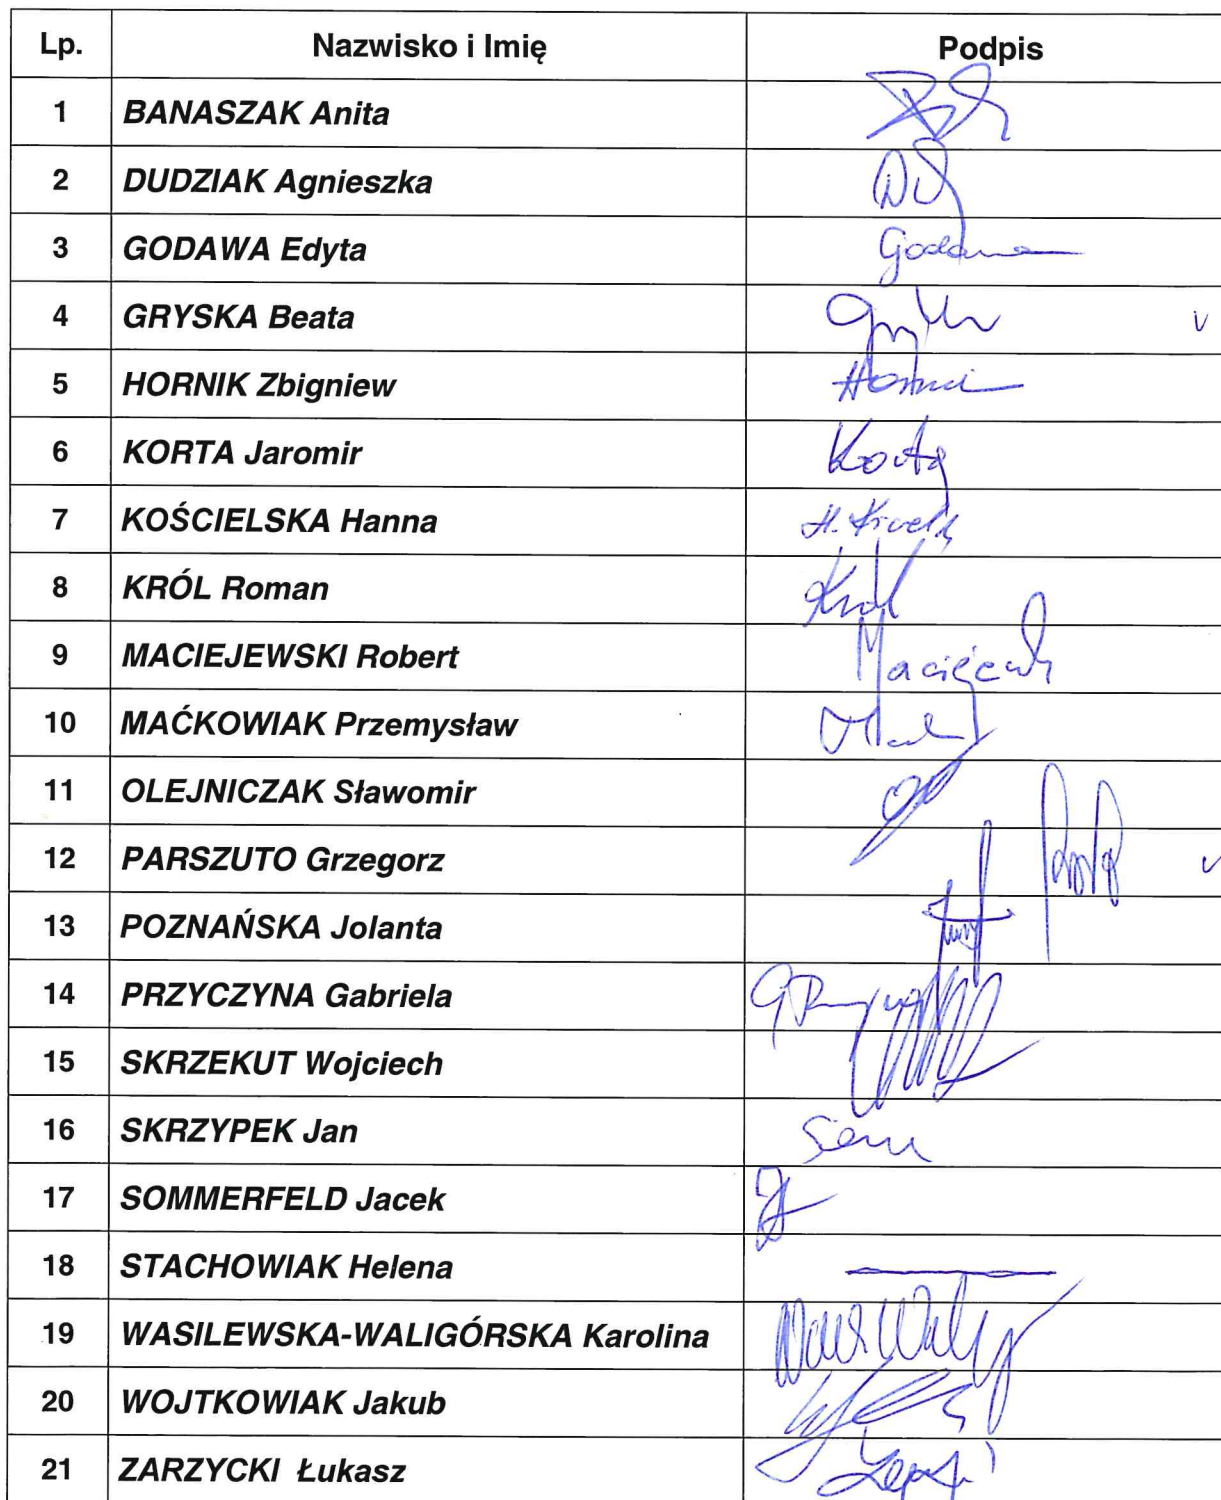 Lp. Nazwisko i Imię Podpis
1 BANASZAK Anita
2 DUDZIAK Agnieszka
3 GODAWA Edyta Godawa
4 GRYSKA Beata v
5 HORNIK Zbigniew
6 KORTA Jaromir Korta
7 KOŚCIELSKA Hanna H.
8 KRÓL Roman Król
9 MACIEJEWSKI Robert
10 MAĆKOWIAK Przemysław
11 OLEJNICZAK Sławomir
12 PARSZUTO Grzegorz v
13 POZNAŃSKA Jolanta
14 PRZYCZYNA Gabriela
15 SKRZEKUT Wojciech
16 SKRZYPEK Jan
17 SOMMERFELD Jacek
18 STACHOWIAK Helena
19 WASILEWSKA-WALIGÓRSKA Karolina
20 WOJTKOWIAK Jakub
21 ZARZYCKI Łukasz